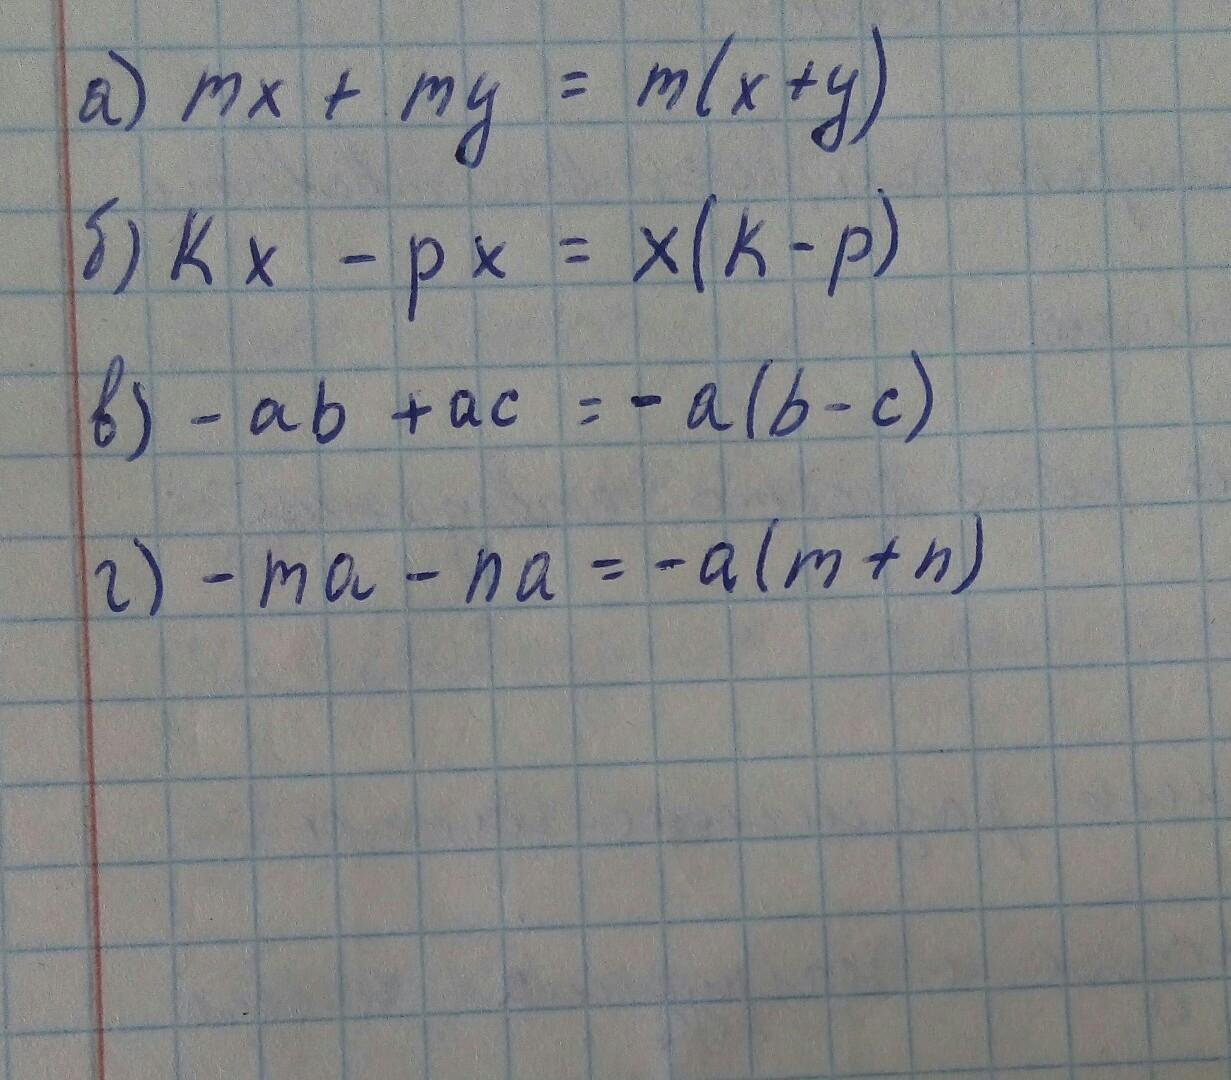 а) mx + my = m(x+y)
б) Kx - px = x(K-p)
в) -ab +ac = -a(b-c)
г) -ma - na = -a(m+n)